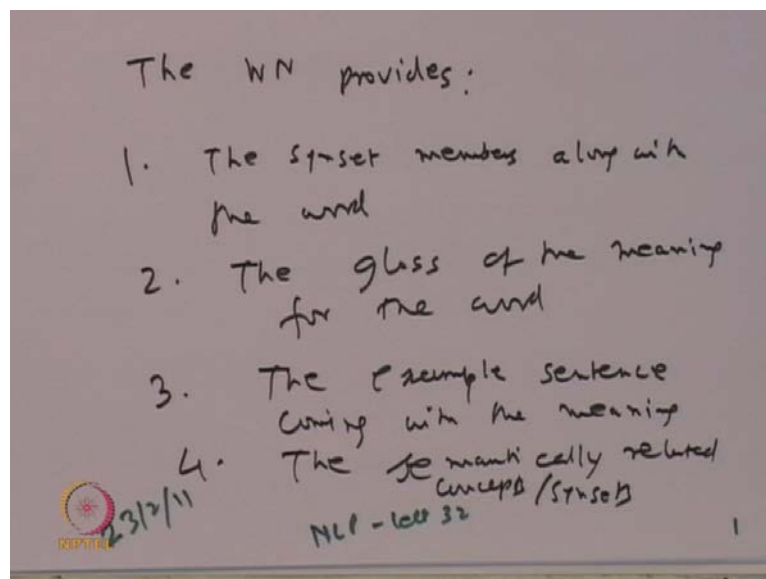 The WN provides:
1. The synset members along with
the word
2. The gloss of the meaning
for the word
3. The example sentence
coming with the meaning
4. The semantically related
concepts/synsets
23/2/11
NPTEL
NLP - lect 32
1